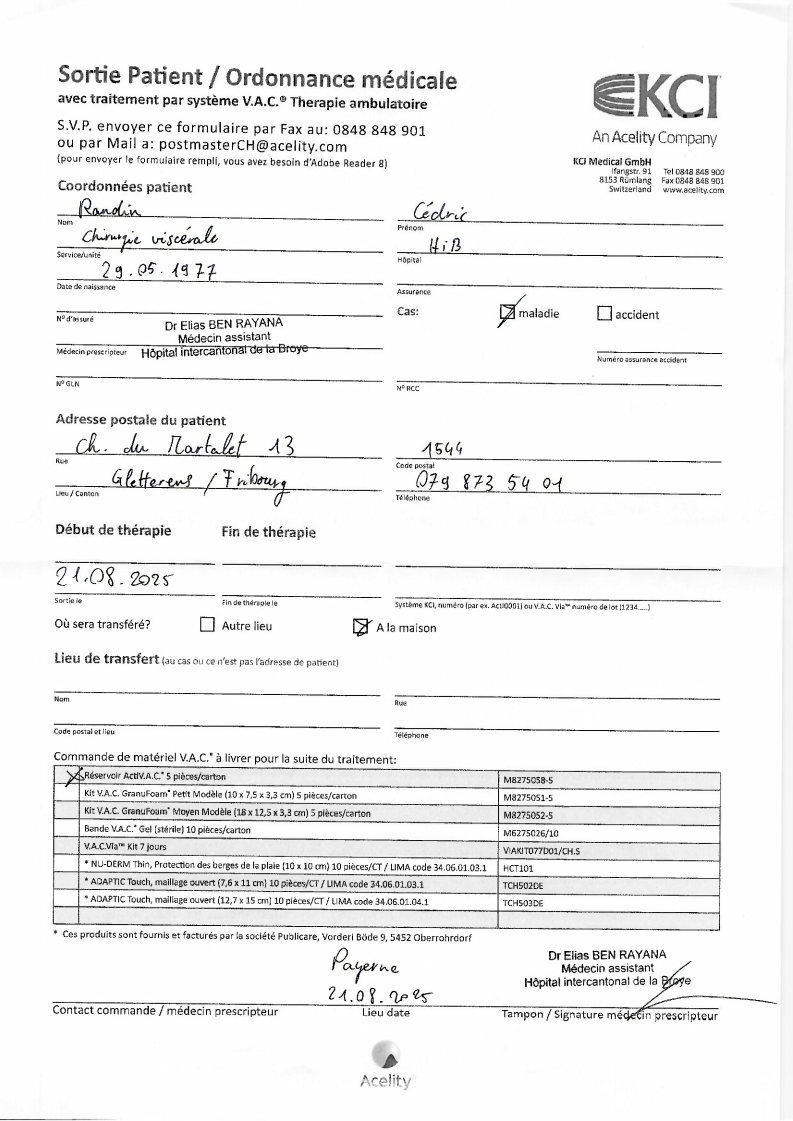 Sortie Patient / Ordonnance médicale
avec traitement par système V.A.C.® Therapie ambulatoire
S.V.P. envoyer ce formulaire par Fax au: 0848 848 901
ou par Mail a: postmasterCH@acelity.com
(pour envoyer le formulaire rempli, vous avez besoin d'Adobe Reader 8)
KCI
An Acelity Company
KCI Medical GmbH
Ifangstr. 91 Tel 0848 848 900
8153 Rümlang Fax 0848 848 901
Switzerland www.acelity.com
Coordonnées patient
Randin Cédric
Nom Prénom
Chirurgie viscérale HiB
Service/unité Hôpital
29.05.1977
Date de naissance Assurance
Cas: maladie accident
N° d'assuré
Dr Elias BEN RAYANA
Médecin assistant
Médecin prescripteur Hôpital intercantonal de la Broye Numéro assurance accident
N° GLN N° RCC
Adresse postale du patient
Ch. du Martalet 13 1544
Rue Code postal
Gletterens / Fribourg 079 873 54 01
Lieu / Canton Téléphone
Début de thérapie Fin de thérapie
21.08.2025
Sortie le Fin de thérapie le Système KCI, numéro (par ex. Acti0001) ou V.A.C. Via™ numéro de lot (1234.....)
Où sera transféré? Autre lieu A la maison
Lieu de transfert (au cas ou ce n'est pas l'adresse de patient)
Nom Rue
Code postal et lieu Téléphone
Commande de matériel V.A.C.® à livrer pour la suite du traitement:
Réservoir ActiV.A.C.® 5 pièces/carton M8275058-5
Kit V.A.C. GranuFoam® Petit Modèle (10 x 7,5 x 3,3 cm) 5 pièces/carton M8275051-5
Kit V.A.C. GranuFoam® Moyen Modèle (18 x 12,5 x 3,3 cm) 5 pièces/carton M8275052-5
Bande V.A.C.® Gel (stérile) 10 pièces/carton M6275026/10
V.A.C.Via™ Kit 7 jours VIAKIT077D01/CH.S
* NU-DERM Thin, Protection des berges de la plaie (10 x 10 cm) 10 pièces/CT / LIMA code 34.06.01.03.1 HCT101
* ADAPTIC Touch, maillage ouvert (7,6 x 11 cm) 10 pièces/CT / LIMA code 34.06.01.03.1 TCH502DE
* ADAPTIC Touch, maillage ouvert (12,7 x 15 cm) 10 pièces/CT / LIMA code 34.06.01.04.1 TCH503DE
* Ces produits sont fournis et facturés par la société Publicare, Vorderi Böde 9, 5452 Oberrohrdorf
Payerne
21.08.2025
Dr Elias BEN RAYANA
Médecin assistant
Hôpital intercantonal de la Broye
Contact commande / médecin prescripteur Lieu date Tampon / Signature médecin prescripteur
Acelity